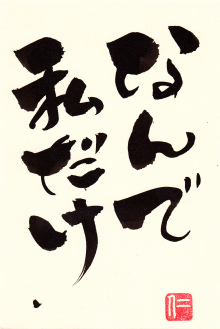 なんで
私だけ.
仁